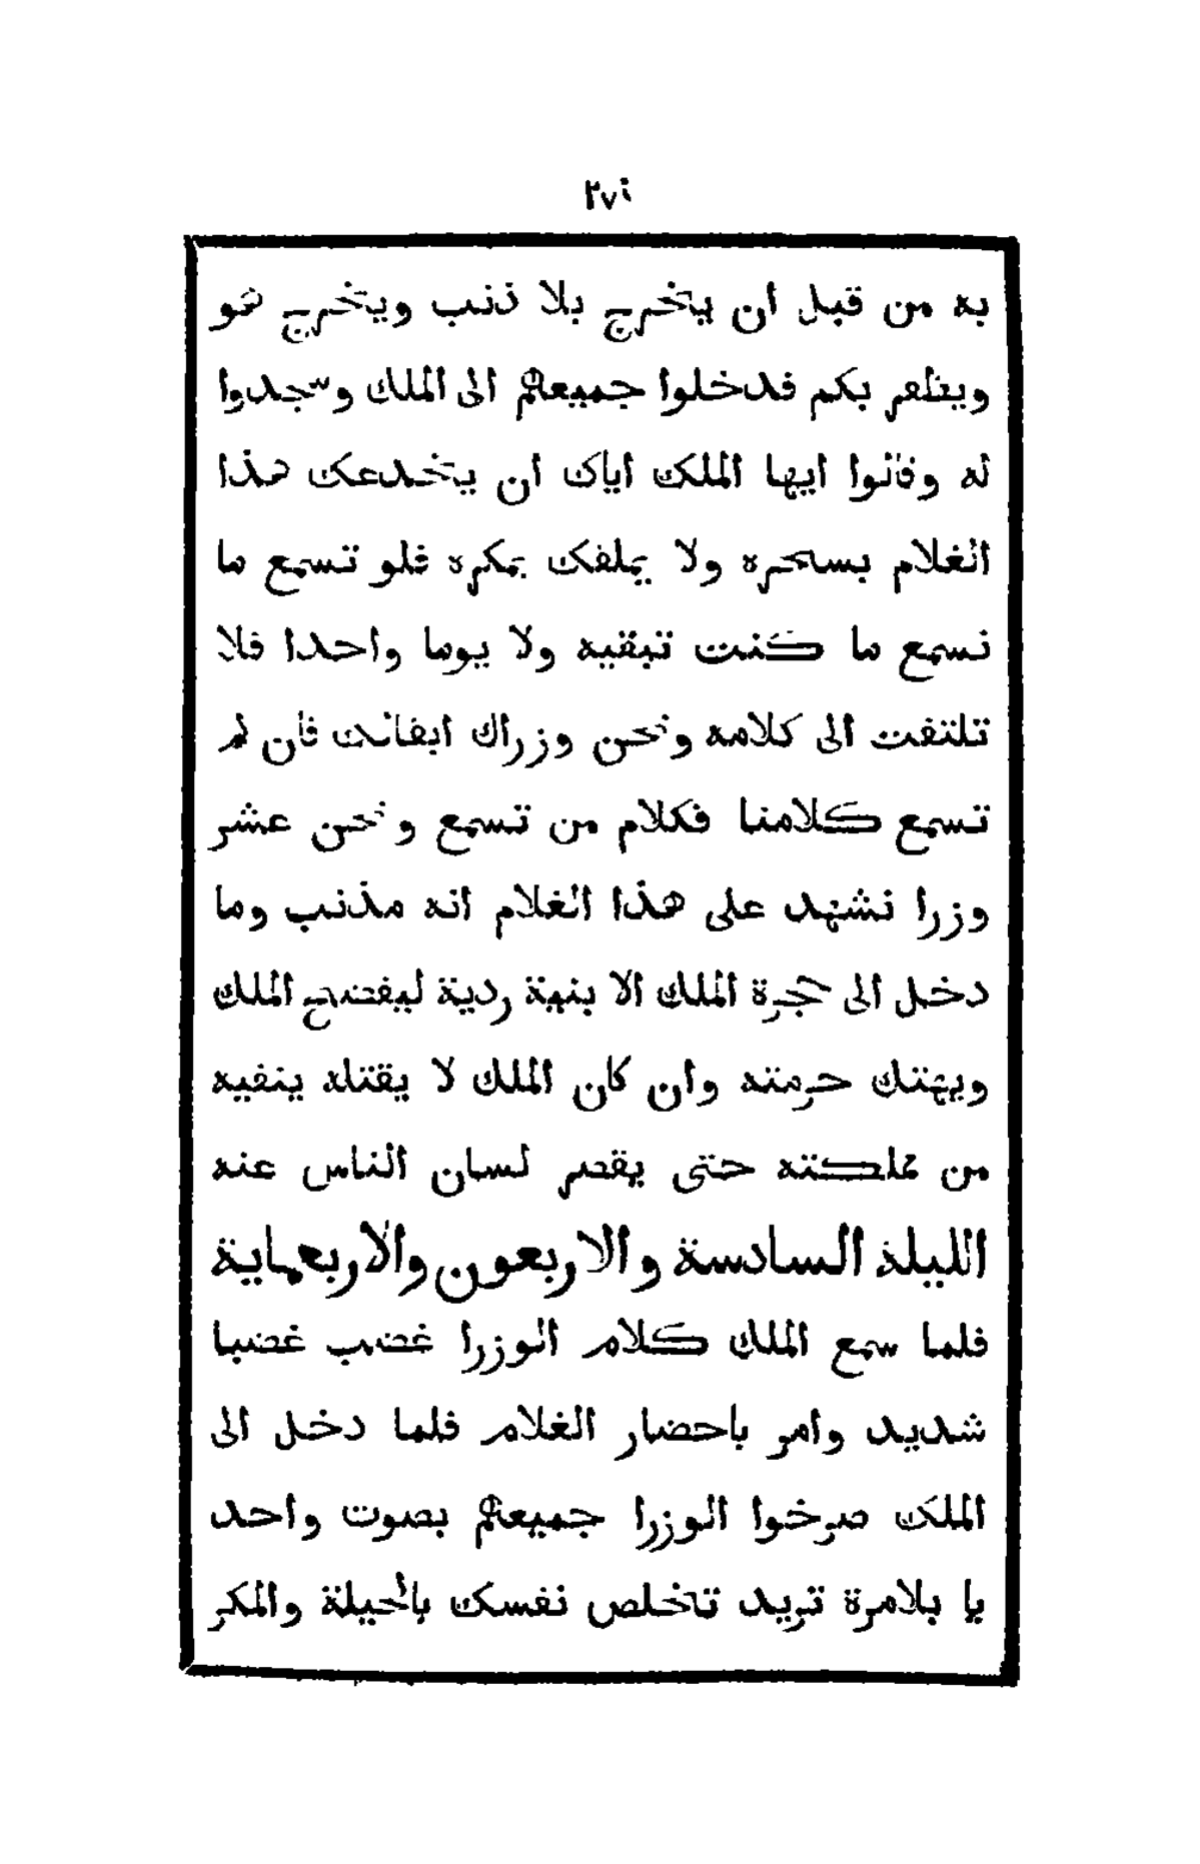 به من قبل ان يخرج بلا ذنب ويخرج هو
ويظفر بكم فدخلوا جميعهم الى الملك وسجدوا
له وقالوا ايها الملك اياك ان يخدعك هذا
الغلام بسحره ولا يملفك بمكره فلو تسمع ما
نسمع ما كنت تبقيه ولا يوما واحدا فلا
تلتفت الى كلامه ونحن وزراك ابقانك فان لم
تسمع كلامنا فكلام من تسمع ونحن عشر
وزرا نشهد على هذا الغلام انه مذنب وما
دخل الى حجرة الملك الا بنية ردية ليفضح الملك
ويهتك حرمته وان كان الملك لا يقتله ينفيه
من مملكته حتى يقصر لسان الناس عنه
الليلة السادسة والاربعون والاربعماية
فلما سمع الملك كلام الوزرا غضب غضبا
شديد وامر باحضار الغلام فلما دخل الى
الملك صرخوا الوزرا جميعهم بصوت واحد
يا بلامرة تريد تخلص نفسك بالحيلة والمكر